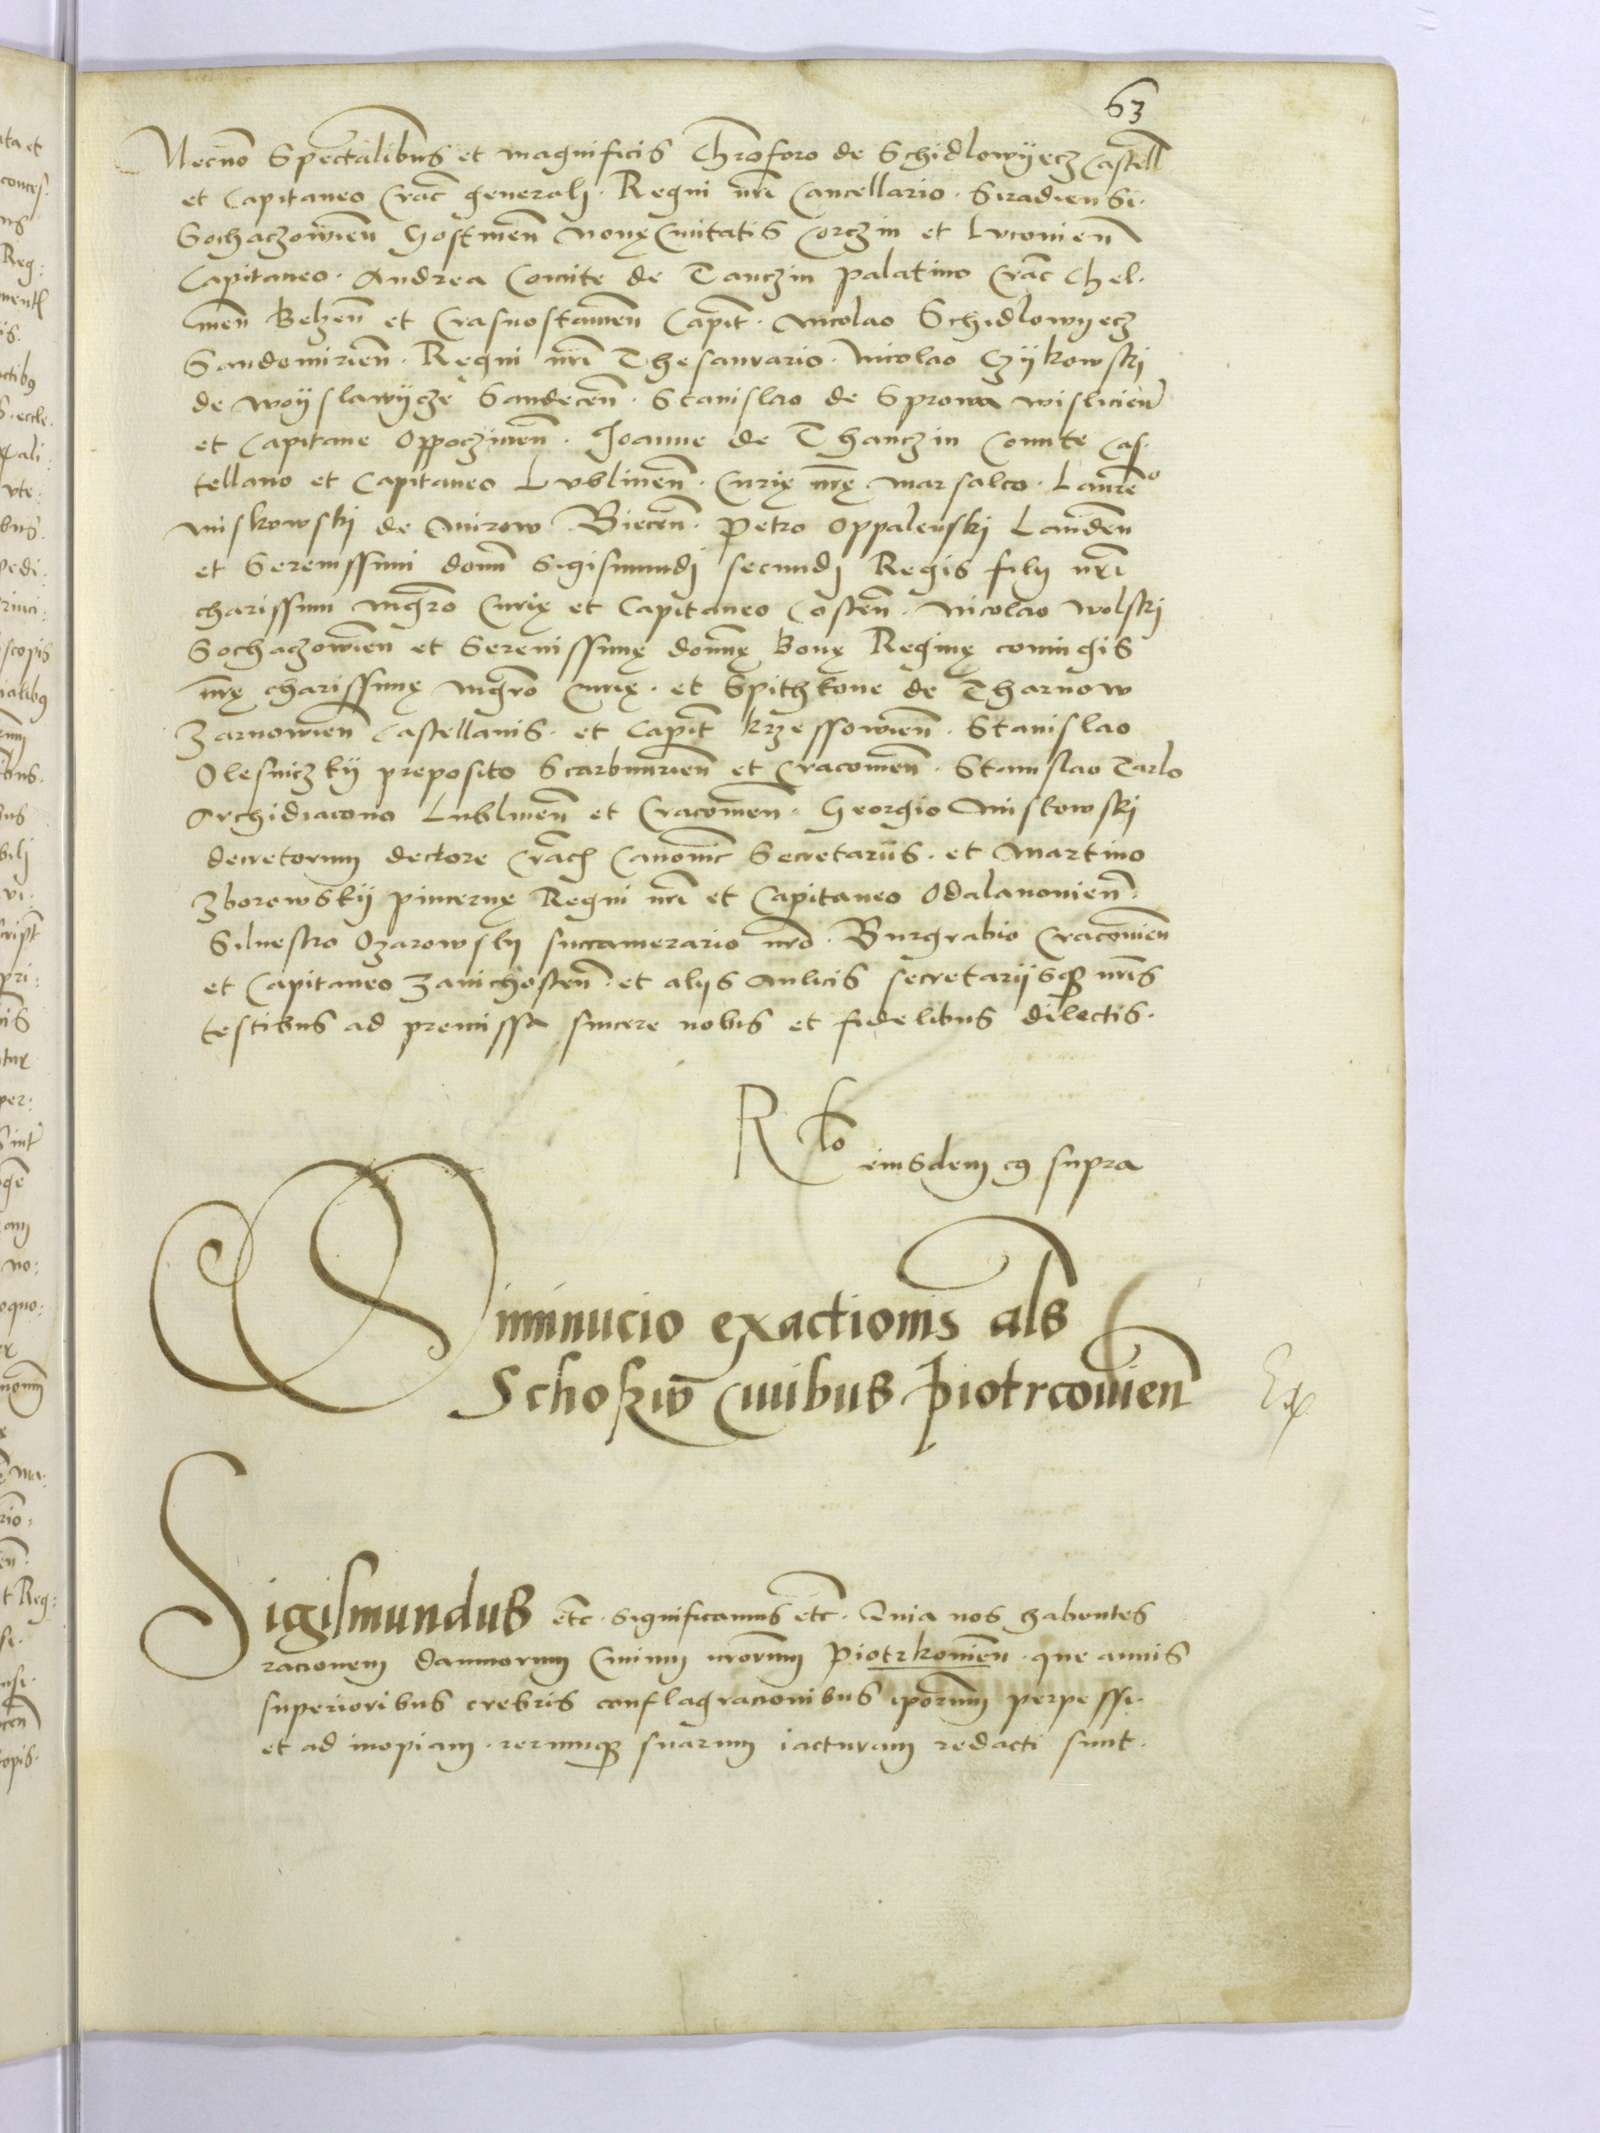 63
Necno Spectabilibus et magnificis Chroforo de Schidlowyecz Castell
et Capitaneo Crac generali. Regni nri Cancellario. Siradiensi.
Sochaczowien Gostinen None Civitatis Corczin et Luconien
Capitaneo. Andrea Comite de Tanczin palatino Crac Chel.
men Belzen et Crasnostawien Capit. Nicolao Schidlowyecz
Sandomirien. Regni nri Thesaurario. Nicolao Czykowski
de woyslawycze Sandecen. Stanislao de Sprowa wislicien
et Capitane Oppoczinen. Joanne de Thanczin Comite Cas.
tellano et Capitaneo Lublinen. Curię nrę Marsalco. Laureo
Miskowski de Mirow Biecen. Petro Oppalenski Landen
et Serenissimi domi Sigismundi secundi Regis filij nri
charissimi mgro Curię et Capitaneo Costen. Nicolao Wolski
Sochaczowien et Serenissimę domnę Bonę Reginę coniugis
nrę charissimę mgro Curię. et Spithkone de Tharnow
Zarnowien Castellanis. et Capit krzessowien. Stanislao
Olesniczky preposito Scarbimirien et Cracovien. Stanislao Tarlo
Archidiacono Lublinen et Cracovien. Georgio Miskowski
decretorum doctore Crach Canonic Secretariis. et Martino
Zborowsky pincernę Regni nri et Capitaneo Odalanovien.
Silvestro Ozarowsky succamerario nro. Burgrabio Cracovien
et Capitaneo Zavichosten. et alijs Aulicis secretarijsque nris
testibus ad premissa sincere nobis et fidelibus dilectis.
Rlo eiusdem cuius supra
Diminucio exactionis als
Schoss Civibus Piotrcovien
Ex
Sigismundus etc. significamus etc. Quia nos habentes
racionem damnorum Civium nrorum Piotrkovien. que annis
superioribus crebris conflagracionibus iporum perpessi.
et ad inopiam. rerumque suarum iacturam redacti sunt.